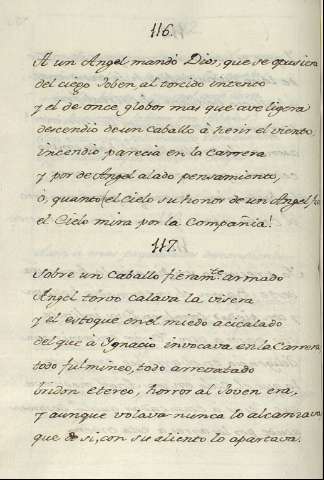 116.
A un Angel mandó Dios, que se opusiera
del ciego Joben, al torcido intento
y el de once globos mas que ave ligera
descendio de un caballo a herir el viento,
incendio parecia en la carrera
y por de Angel alado pensamiento,
o, quanto el Cielo su honor de un Angel
el Cielo mira por la Compañia!
117.
Sobre un Caballo fieramte. armado
Angel torvo calava la visera
y el estoque en el miedo acicalado
del que à Ygnacio invocava en la Carrera
todo fulmineo, todo arrevatado
bridon etereo, horror al Joven era,
y aunque volava nunca lo alcanzava
que de si, con su aliento lo apartava.